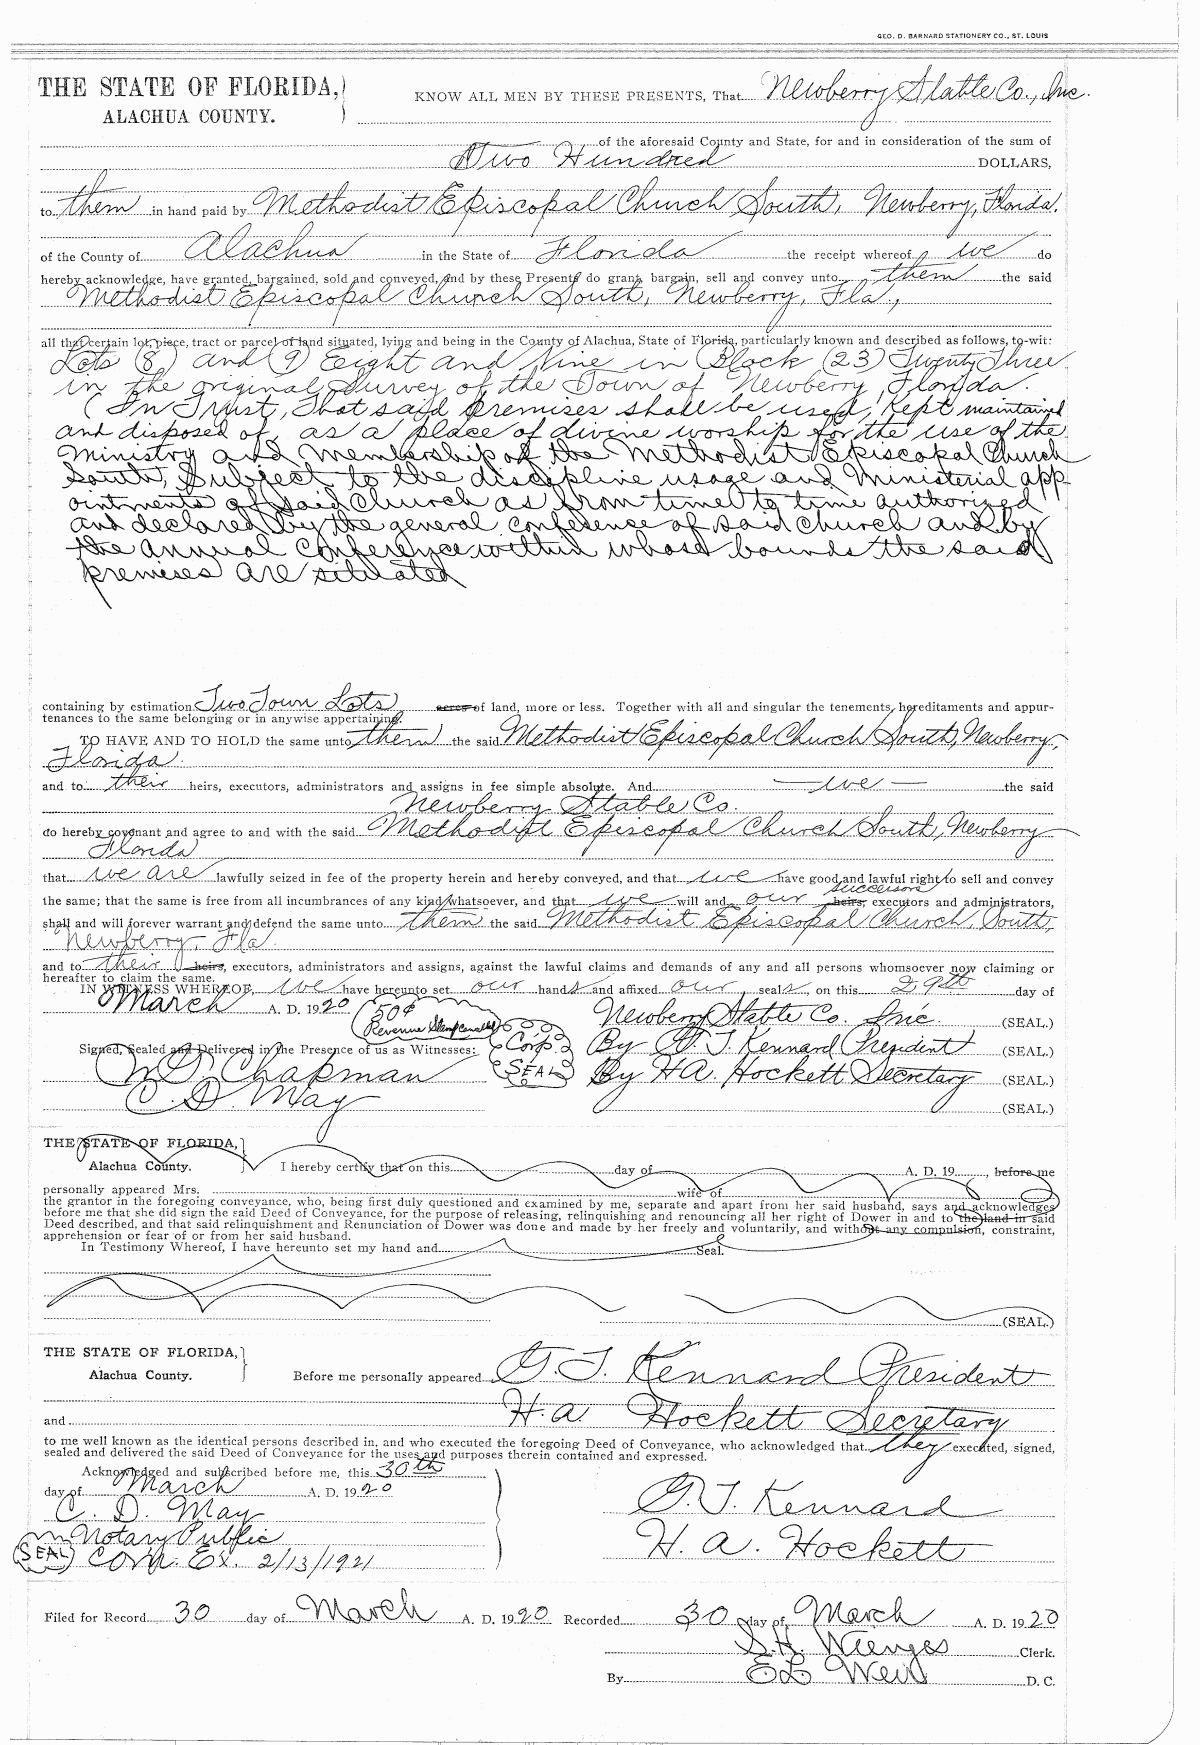 GEO. D. BARNARD STATIONERY CO., ST. LOUIS
THE STATE OF FLORIDA,
ALACHUA COUNTY.
KNOW ALL MEN BY THESE PRESENTS, That Newberry Stable Co., Inc.
of the aforesaid County and State, for and in consideration of the sum of
Two Hundred DOLLARS,
to them in hand paid by Methodist Episcopal Church South, Newberry, Florida.
of the County of Alachua in the State of Florida the receipt whereof we do
hereby acknowledge, have granted, bargained, sold and conveyed, and by these Presents do grant, bargain, sell and convey unto them the said
Methodist Episcopal Church South, Newberry, Fla.,
all that certain lot, piece, tract or parcel of land situated, lying and being in the County of Alachua, State of Florida, particularly known and described as follows, to-wit:
Lots (8) and (9) Eight and Nine in Block (23) Twenty Three
in the original Survey of the Town of Newberry, Florida.
(In Trust, That said premises shall be used, Kept maintained
and disposed of, as a place of divine worship for the use of the
Ministry and membership of the Methodist Episcopal Church
South, Subject to the discipline usage and Ministerial app
ointments of said Church as from time to time authorized
and declared by the general conference of said church and by
the annual conference within whose bounds the said
premises are situated
containing by estimation Two Town Lots acres of land, more or less. Together with all and singular the tenements, hereditaments and appur-
tenances to the same belonging or in anywise appertaining.
TO HAVE AND TO HOLD the same unto them the said Methodist Episcopal Church South, Newberry,
Florida.
and to their heirs, executors, administrators and assigns in fee simple absolute. And — we — the said
Newberry Stable Co.
do hereby covenant and agree to and with the said Methodist Episcopal Church South, Newberry
Florida
that we are lawfully seized in fee of the property herein and hereby conveyed, and that we have good and lawful right to sell and convey
successors
the same; that the same is free from all incumbrances of any kind whatsoever, and that we will and our heirs, executors and administrators,
shall and will forever warrant and defend the same unto them the said Methodist Episcopal Church, South,
Newberry Fla.
and to their heirs, executors, administrators and assigns, against the lawful claims and demands of any and all persons whomsoever now claiming or
hereafter to claim the same.
IN WITNESS WHEREOF, we have hereunto set our hands and affixed our seals, on this 29th day of
March A. D. 1920
50¢
Revenue Stamp cancelled
Corp.
SEAL
Newberry Stable Co. Inc. (SEAL.)
By G. T. Kennard President (SEAL.)
By H A. Hockett Secretary (SEAL.)
(SEAL.)
Signed, Sealed and Delivered in the Presence of us as Witnesses:
Chapman
C. D. May
THE STATE OF FLORIDA,
Alachua County.
I hereby certify that on this day of A. D. 19 , before me
personally appeared Mrs. wife of
the grantor in the foregoing conveyance, who, being first duly questioned and examined by me, separate and apart from her said husband, says and acknowledges
before me that she did sign the said Deed of Conveyance, for the purpose of releasing, relinquishing and renouncing all her right of Dower in and to the land in said
Deed described, and that said relinquishment and Renunciation of Dower was done and made by her freely and voluntarily, and without any compulsion, constraint,
apprehension or fear of or from her said husband.
In Testimony Whereof, I have hereunto set my hand and Seal.
(SEAL.)
THE STATE OF FLORIDA,
Alachua County.
Before me personally appeared G. T. Kennard President
and H. A Hockett Secretary
to me well known as the identical persons described in, and who executed the foregoing Deed of Conveyance, who acknowledged that they executed, signed,
sealed and delivered the said Deed of Conveyance for the uses and purposes therein contained and expressed.
Acknowledged and subscribed before me, this 30th
day of March A. D. 1920
C. D. May
Notary Public
(SEAL) Com. Ex. 2/13/1921
G. T. Kennard
H. A. Hockett
Filed for Record 30 day of March A. D. 1920 Recorded 30 day of March A. D. 1920
S. H. Wienges Clerk.
By E L Weir D. C.